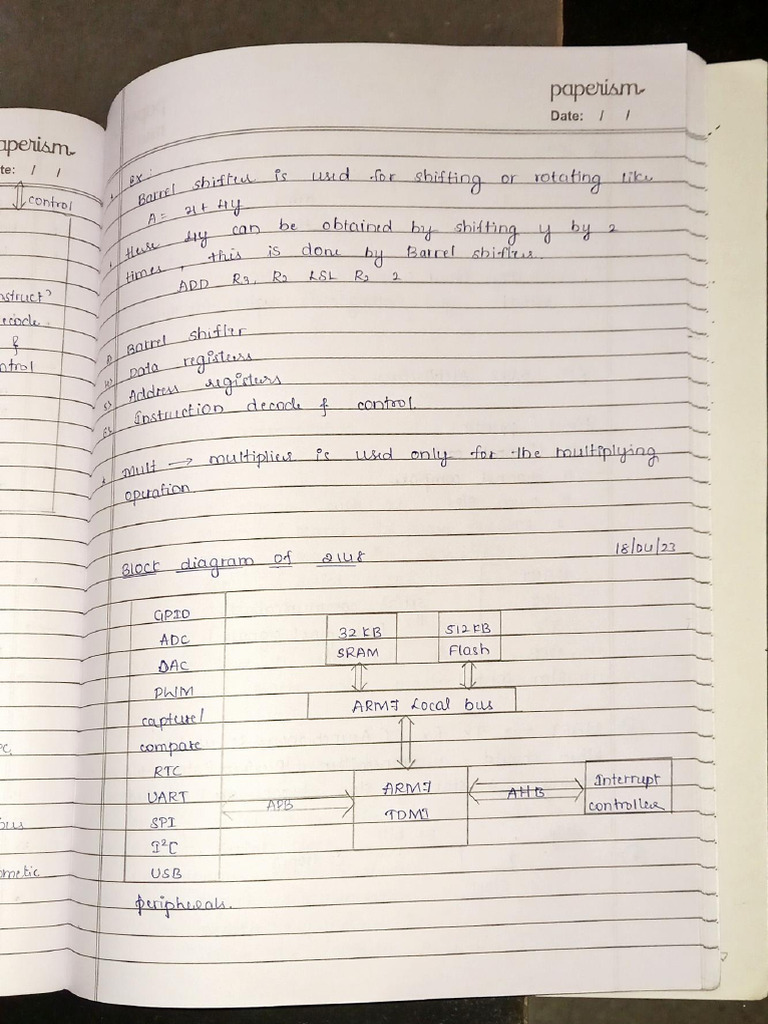 aperism
te: / /
control
struct?
ecode
&
ntrol
bus
metic
paperism
Date: / /
Ex:
Barrel shifter is used for shifting or rotating like
A = x + 4y
Here 4y can be obtained by shifting y by 2
times, this is done by Barrel shifter.
ADD R3, R2 LSL R2 2
Barrel shifter
Data registers
5) Address registers
6) Instruction decode & control.
Mult → multiplier is used only for the multiplying
operation
Block diagram of 2148
18/04/23
GPIO
ADC
DAC
PWM
capture/
compare
RTC
UART
SPI
I²C
USB
peripherals.
32 KB
SRAM
512 KB
Flash
ARM7 Local bus
APB
ARM7
TDMI
AHB
Interrupt
controller